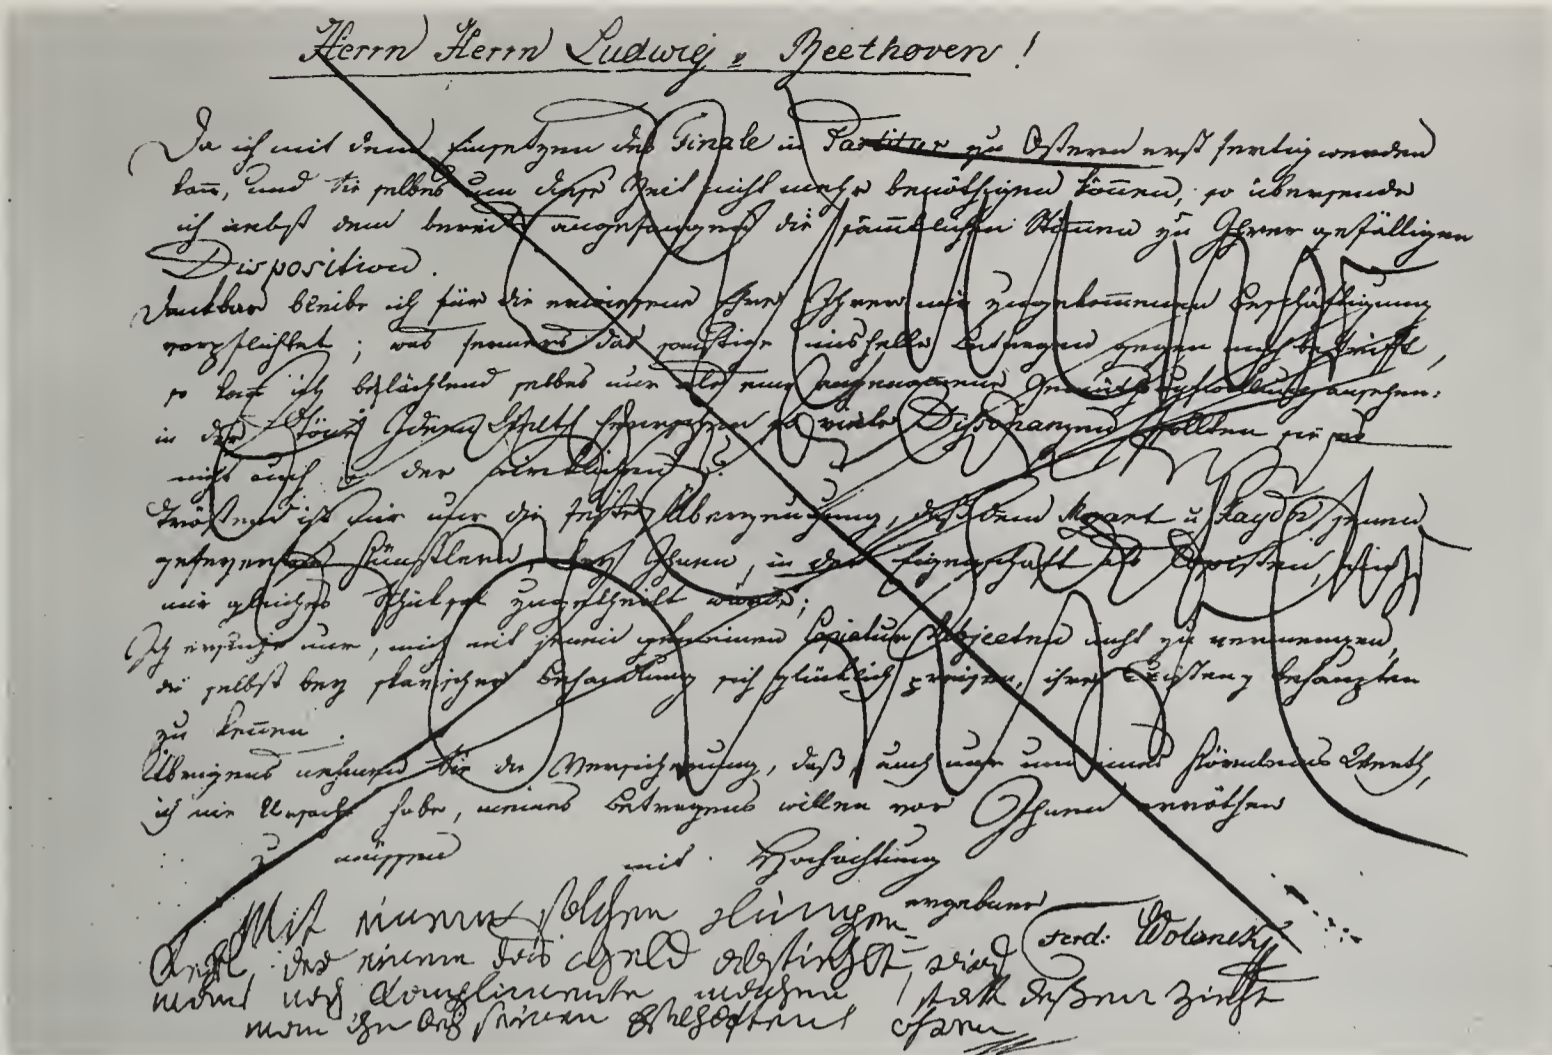 Herrn Herrn Ludwig v Beethoven!
Da ich mit dem Einsetzen des Finale in Partitur zu Ostern erst fertig werden
kann, und Sie selbes um diese Zeit nicht mehr benöthigen können, so übersende
ich nebst dem bereits angefangenen die sämmtlichen Stimmen zu Ihrer gefälligen
Disposition.
Dankbar bleibe ich für die erwiesene Ehre Ihrer mir zugekommenen Beschäftigung
verpflichtet; was ferners das sonstige mishellige Betragen gegen mich betrifft,
so kann ich belächelnd selbes nur als eine angenommene Gemüthsaufwallung ansehen:
in der Töne Ideen Welth herrschen so viele Dissonanzen sollten sie es
nicht auch in der wirklichen?
Tröstend ist mir nur die feste Überzeugung, daß dem Mozart u Haydn jenen
gefeyerten Künstlern, bey Ihnen, in der Eigenschaft als Copisten, ein
mir gleiches Schicksal zugetheilt würde;
Ich ersuche nur, mich mit jenen gemeinen Copiatur Subjecten nicht zu vermengen,
die selbst bey sklavischer Behandlung sich glücklich preisen, ihre Existenz behaupten
zu können.
Übrigens nehmen Sie die Versicherung, daß auch nur um eines Körnleins Werth,
ich nie Ursache habe, meines Betragens willen vor Ihnen erröthen
zu müssen
mit Hochachtung
ergebener
Ferd: Wolanek
Mit einem solchen Lumpen
Kerl, der einem das Geld abstiehlt, wird
man noch Complimente machen, statt deßen zieht
man ihn bey seinen Eselhaften ohren